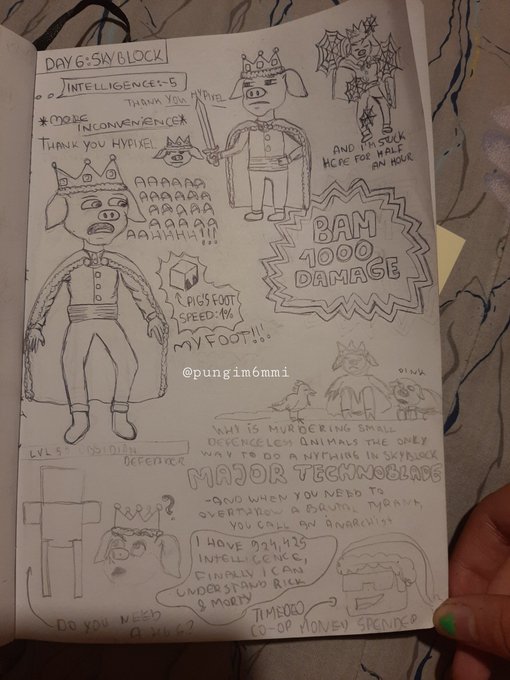 DAY 6: SKYBLOCK
INTELLIGENCE:-5
THANK YOU HYPIXEL
*MORE
INCONVENIENCE*
THANK YOU HYPIXEL
AND I'M STUCK
HERE FOR HALF
AN HOUR
AAAAAA
AAAAAA
AAAAAA
AAAAAA
AAHHHH!!!
BAM
1000
DAMAGE
PIG'S FOOT
SPEED:1%
MY FOOT!!!
@pungim6mmi
OINK
WHY IS MURDERING SMALL
DEFENCELESS ANIMALS THE ONLY
WAY TO DO ANYTHING IN SKYBLOCK
LVL 5: OBSIDIAN
DEFENDER
MAJOR TECHNOBLADE
-AND WHEN YOU NEED TO
OVERTHROW A BRUTAL TYRANT,
YOU CALL AN ANARCHIST
?
I HAVE 924,425
INTELLIGENCE,
FINALLY I CAN
UNDERSTAND RICK
& MORTY
DO YOU NEED
TIMEDEO
CO-OP MONEY SPENDER